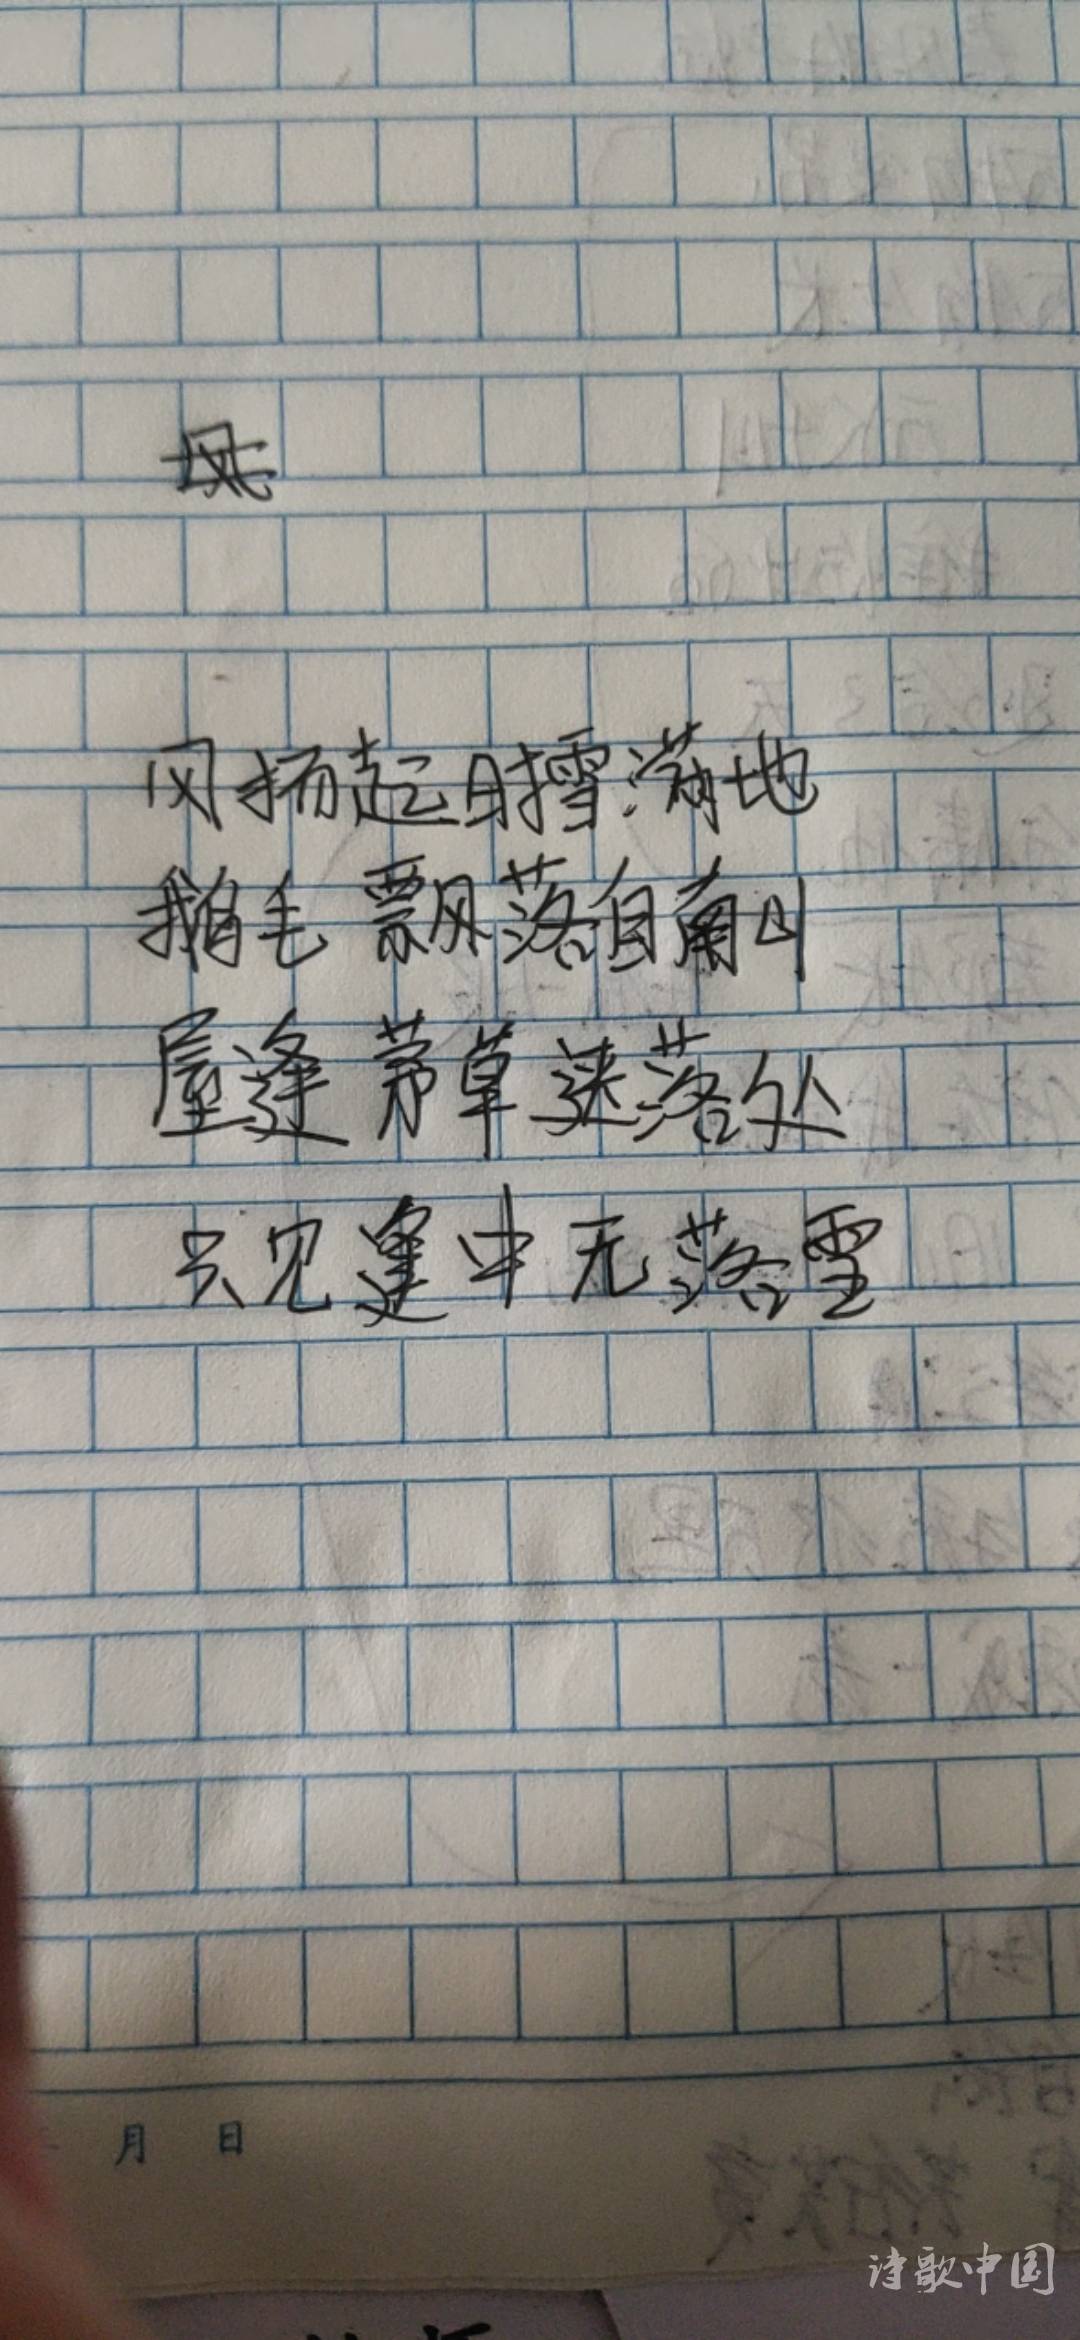 风扬起时雪满地
鹅毛飘落自南山
屋逢茅草迷落处
只见逢中无落雪
月 日
诗歌中国